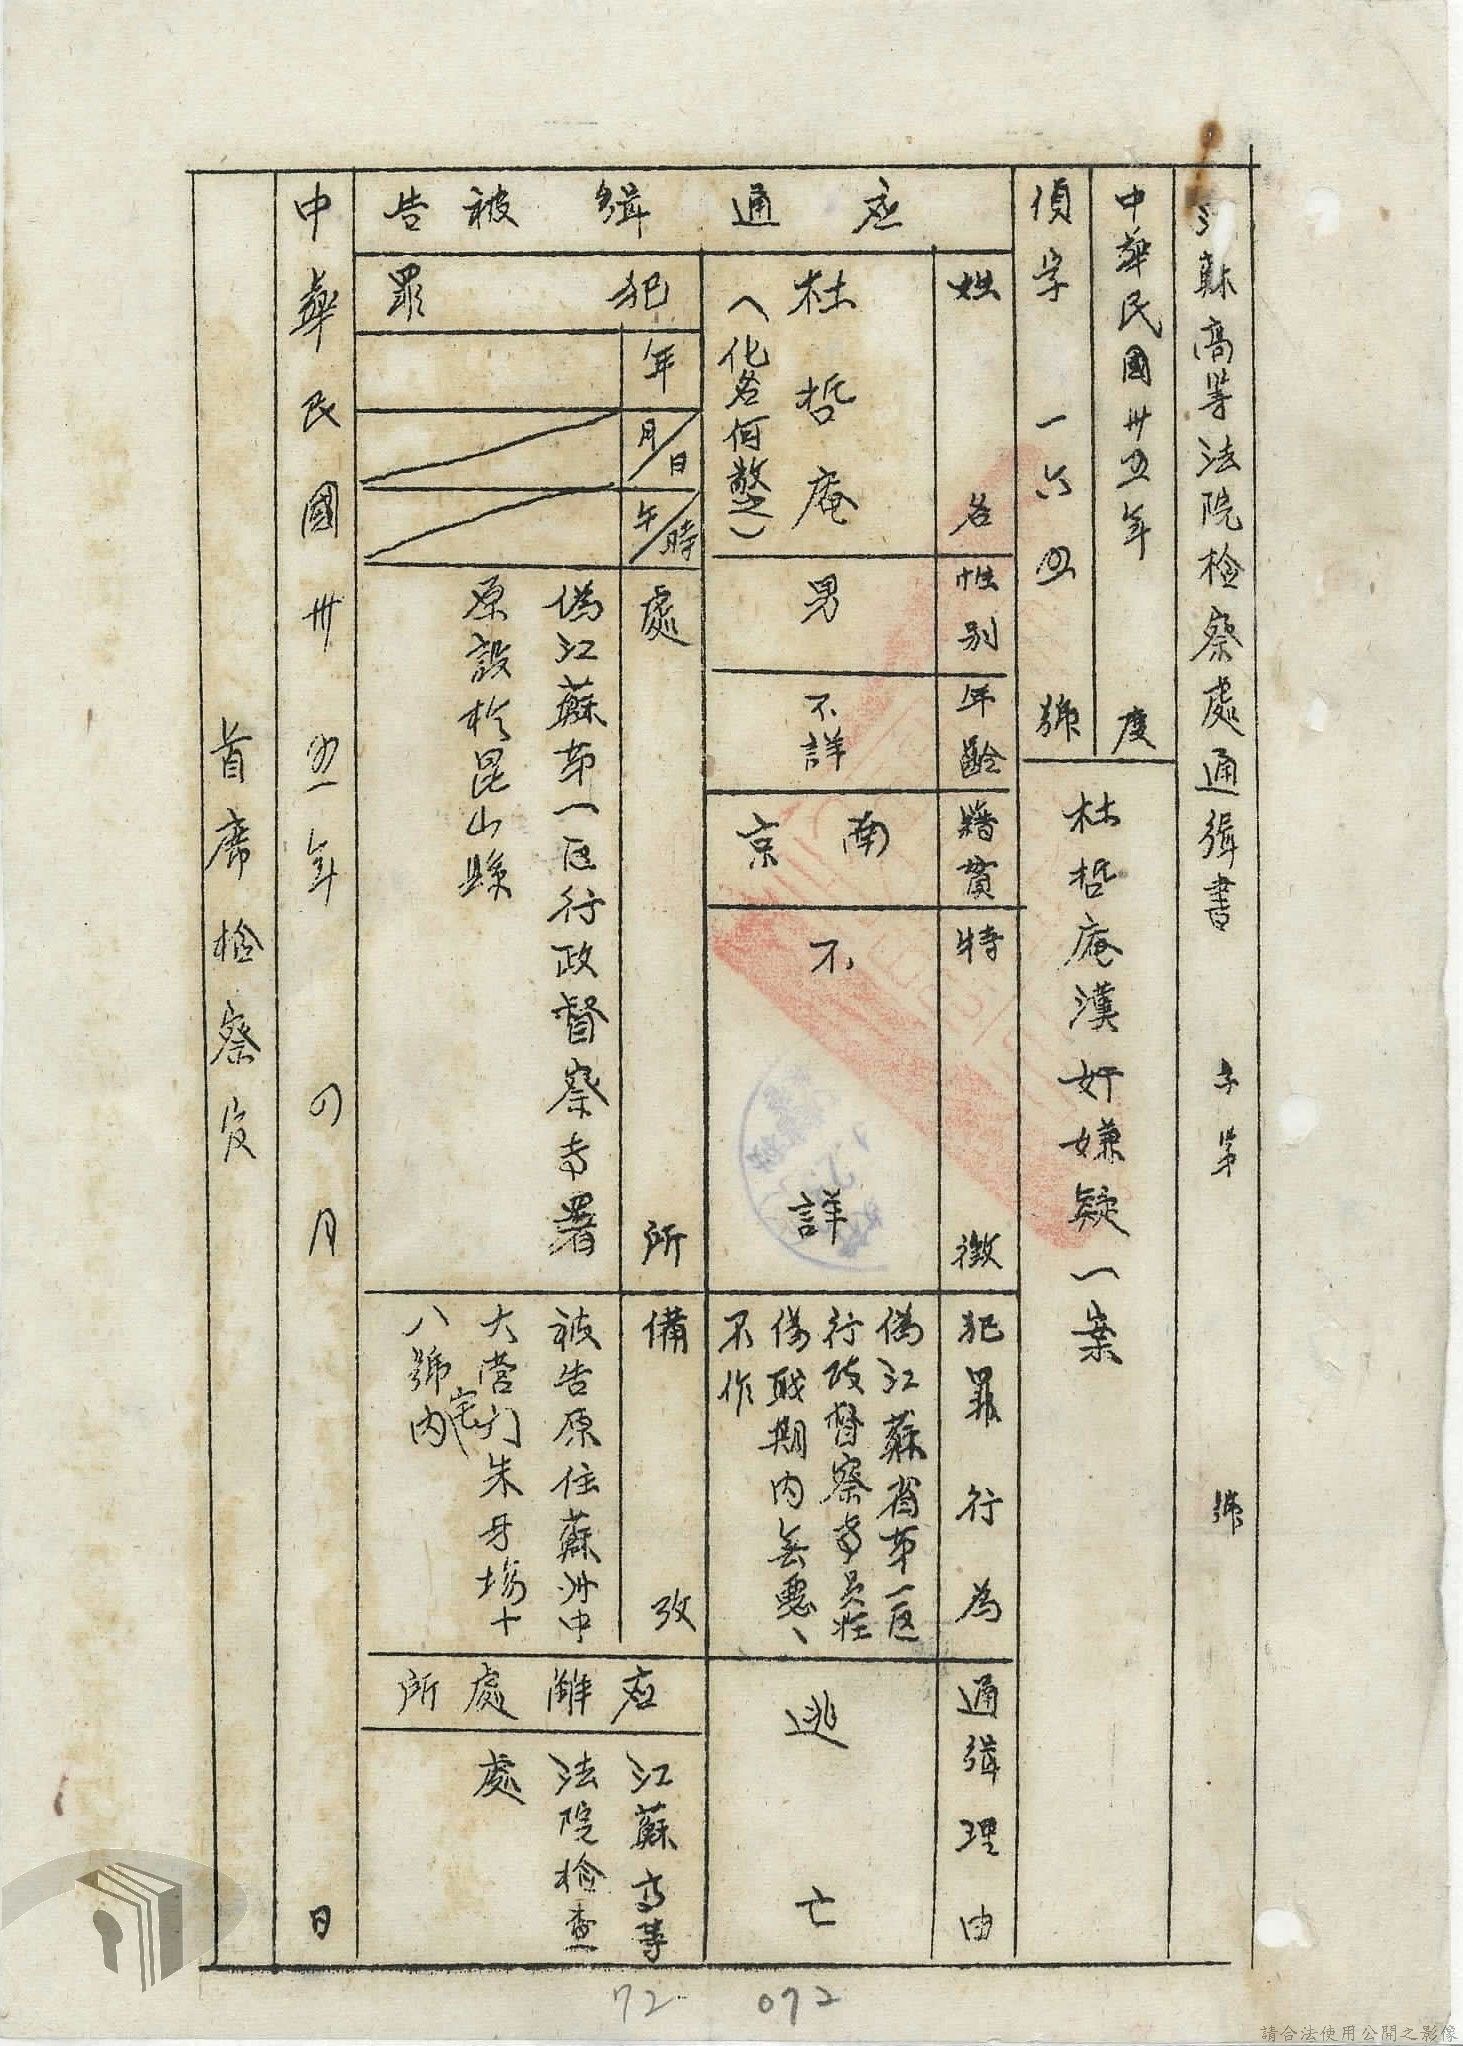 江蘇高等法院檢察處通緝書　字第　號
中華民國卅五年度
偵字一六四號
杜哲庵漢奸嫌疑一案
应通緝被告
姓名
杜哲庵
（化名何憖之）
性別
男
年齡
不詳
籍貫
南京
特徵
不詳
犯罪行為
偽江蘇省第一区
行政督察専員在
偽職期内無惡、
不作
通緝理由
逃亡
犯罪
年
月/日
午/時
處所
偽江蘇第一区行政督察専署
原設於昆山縣
備攷
被告原住蘇州中
大营门朱牙場十
八號宅内
应解處所
江蘇高等
法院檢查
處
中華民國卅五年四月　日
首席檢察官
72
072
請合法使用公開之影像